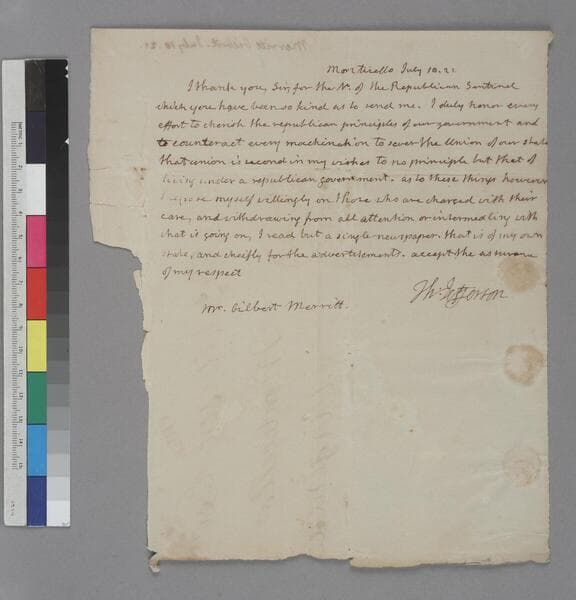 Monticello July 10. 21.
I thank you, Sir, for the No. of the Republican Sentinel
which you have been so kind as to send me. I duly honor every
effort to cherish the republican principles of our government and
to counteract every machination to sever the Union of our states
that union is second in my wishes to no principle but that of
living under a republican government. as to these things however
I repose myself willingly on those who are charged with their
care, and withdrawing from all attention or intermedling with
what is going on, I read but a single newspaper that is of my own
state, and cheifly for the advertisements. accept the assurance
of my respect
Th: Jefferson
Mr. Gilbert Merritt.